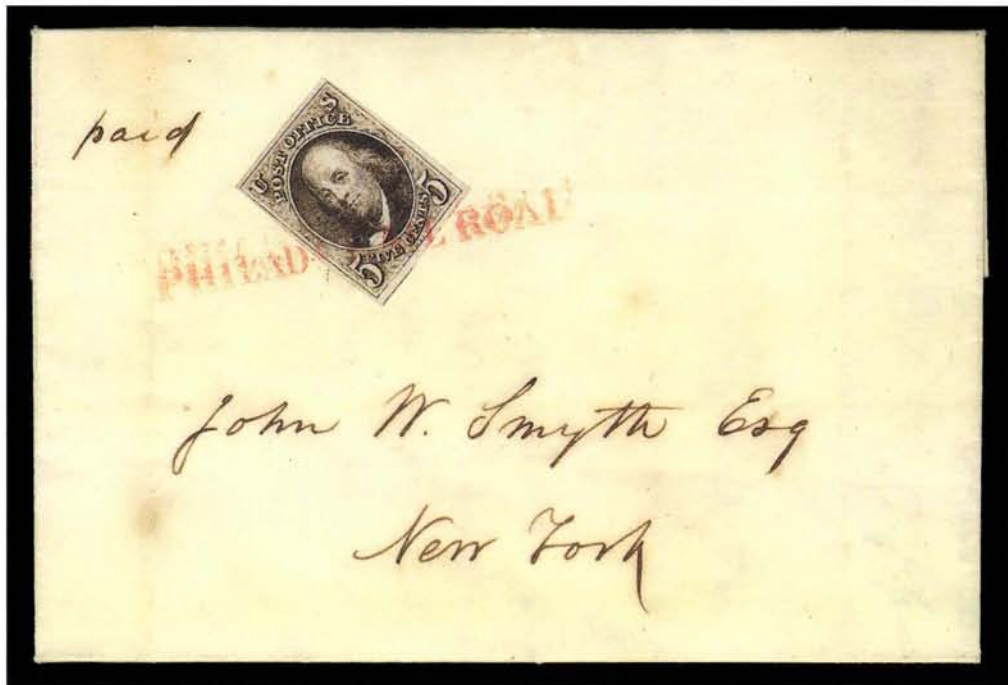 paid
U S
POST OFFICE
5 FIVE CENTS 5
PHILAD L ROAD
John W. Smyth Esq
New York